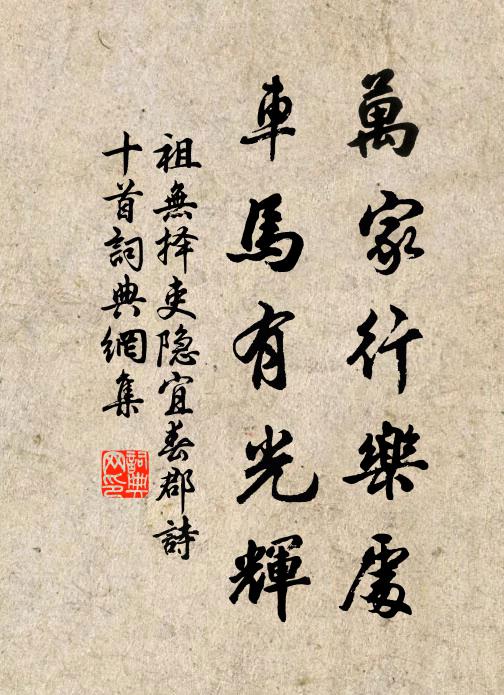 萬家行樂處
車馬有光輝
祖無择吏隐宜春郡詩
十首詞典網集
詞典
网印